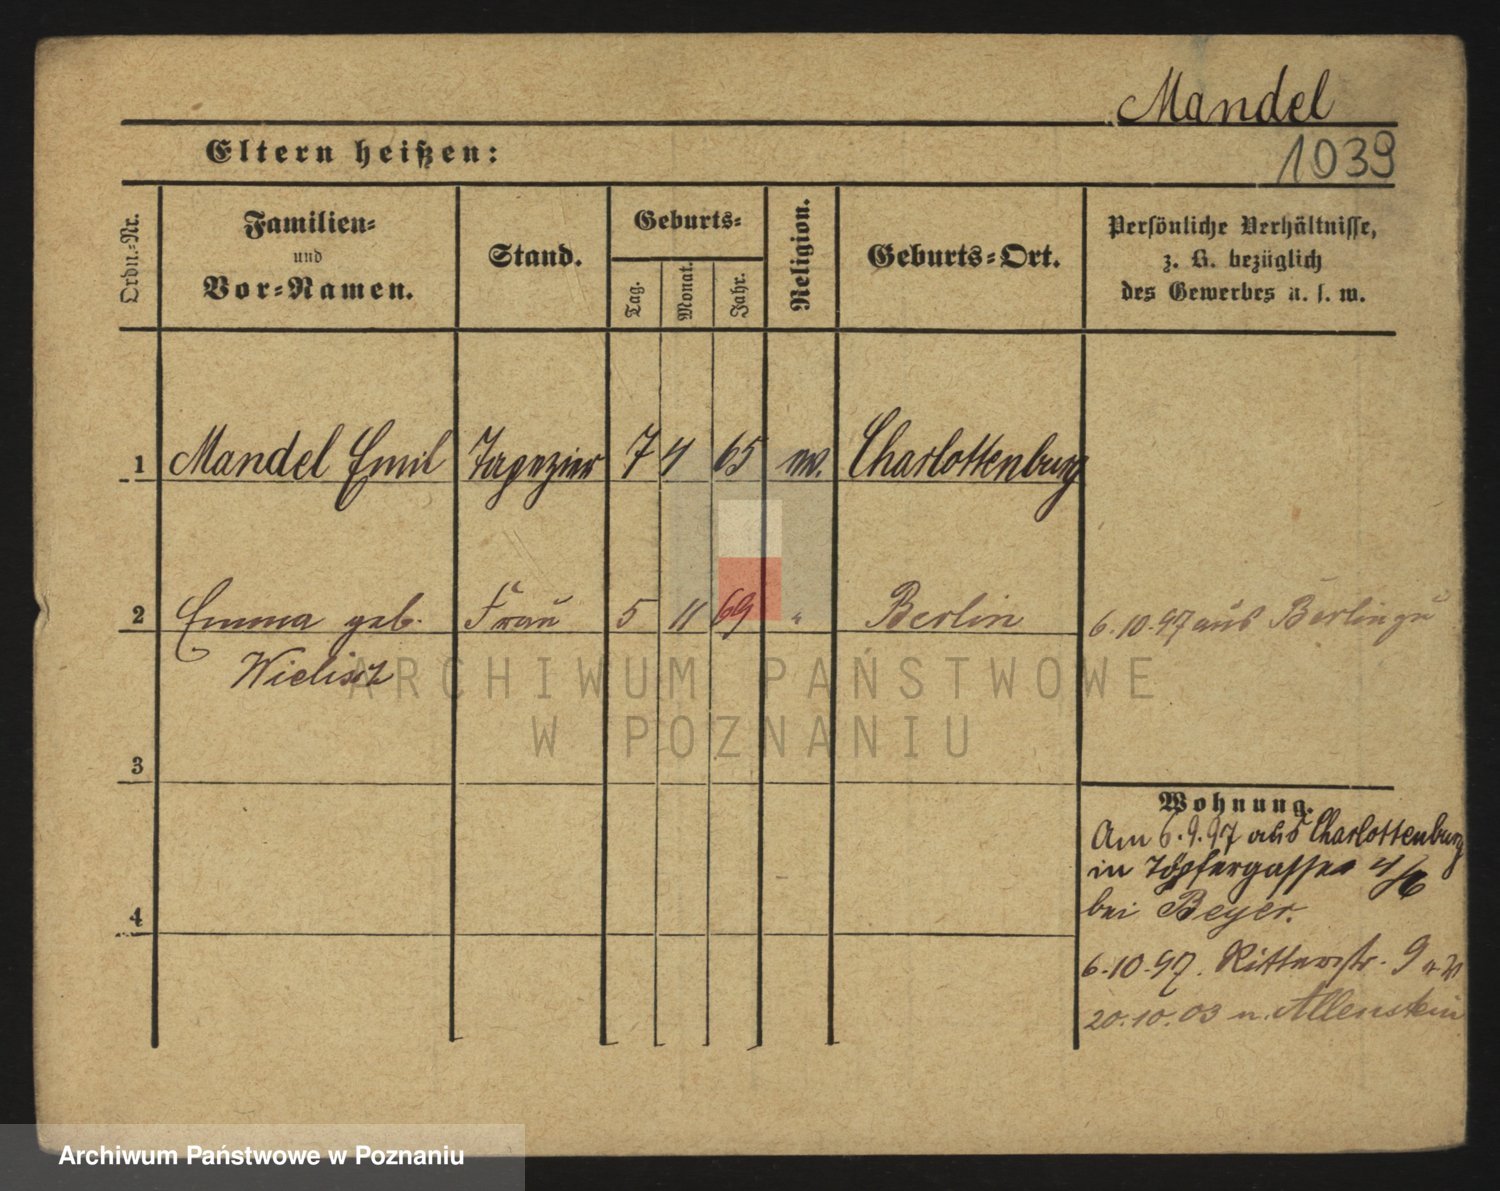 Mandel
1039
Eltern heißen:
Ordn.-Nr.
Familien-
und
Vor-Namen.
Stand.
Geburts-
Tag.
Monat.
Jahr.
Religion.
Geburts-Ort.
Persönliche Verhältnisse,
z. B. bezüglich
des Gewerbes u. s. w.
1 Mandel Emil Tapezier 7 4 65 ev. Charlottenburg
2 Emma geb. Frau 5 11 69 " Berlin 6.10.97 aus Berlin zu
3
4
Wohnung.
Am 6.9.97 aus Charlottenburg
in Töpfergasse 4/6
bei Beyer.
6.10.97. Ritterstr. 9
20.10.03 n. Allenstein
ARCHIWUM PAŃSTWOWE
W POZNANIU
Archiwum Państwowe w Poznaniu